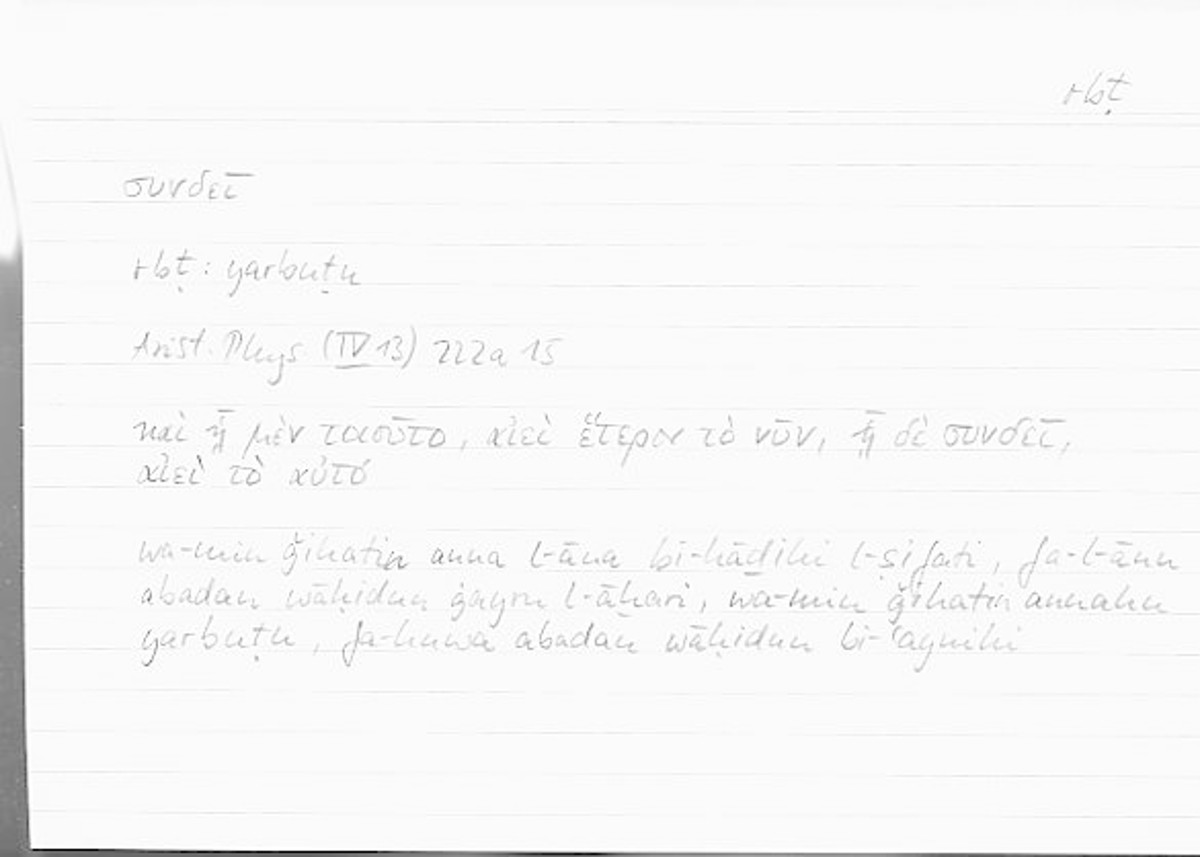 rbṭ
συνδεῖ
rbṭ : yarbuṭu
Arist. Phys (IV 13) 222a 15
καὶ ᾗ μὲν τοιοῦτο, αἰεὶ ἕτερον τὸ νῦν, ᾗ δὲ συνδεῖ,
αἰεὶ τὸ αὐτό
wa-min ǧihatin anna l-āna bi-hāḏihi l-ṣifati, fa-l-ānu
abadan wāḥidun ġayru l-āḫari, wa-min ǧihatin annahu
yarbuṭu, fa-huwa abadan wāḥidun bi-ʿaynihi